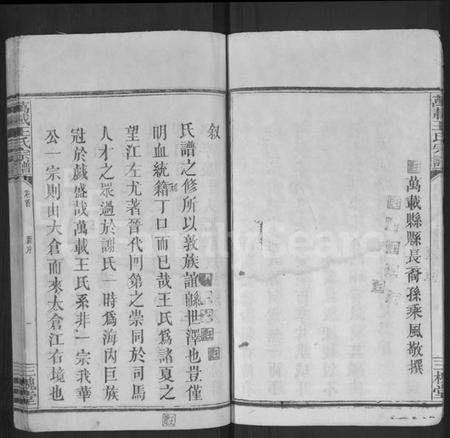 萬載王氏宗譜
萬載縣縣長裔孫乘風敬撰
三槐堂
敘
氏譜之修所以敦族誼綿世澤也豈僅
明血統籍丁口而已哉王氏為諸夏之
望江左尤著晉代門第之崇同於司馬
人才之眾過於謝氏一時為海內巨族
冠於戲盛哉萬載王氏系非一宗我華
公一宗則由太倉而來太倉江右境也
萬載王氏宗譜
卷首
一
三槐堂
FamilySearch